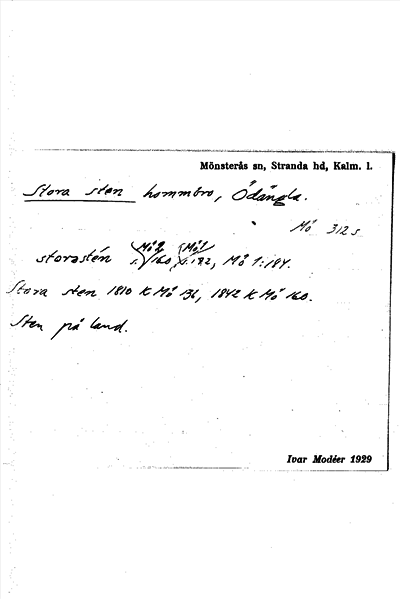 Mönsterås sn, Stranda hd, Kalm. l.
Stora sten hommbro, Ödängla.
Mö 312 s
storastén Mö 2 s. 160, Mö 1 s. 182, Mö 1:184.
Stora sten 1810 K Mö 136, 1842 K Mö 160.
Sten på land.
Ivar Modéer 1929